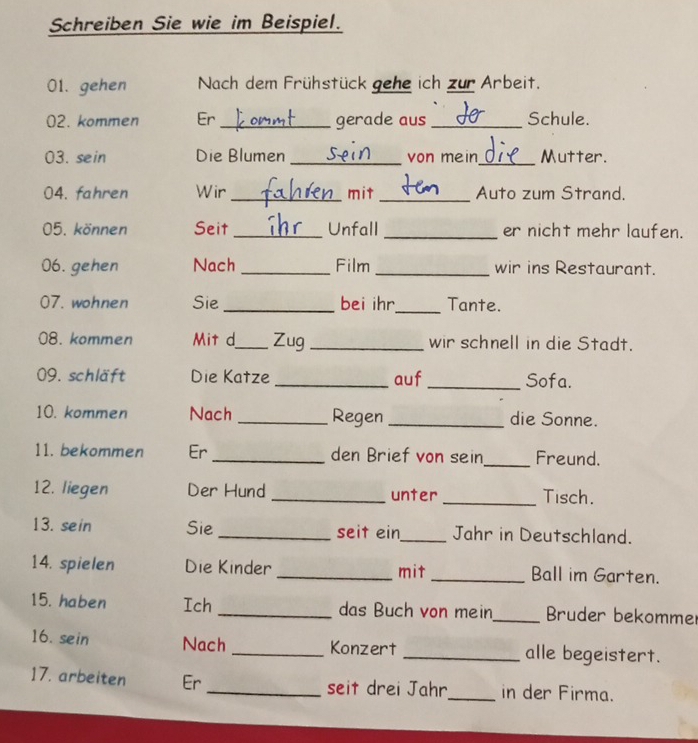 Schreiben Sie wie im Beispiel.
01. gehen Nach dem Frühstück gehe ich zur Arbeit.
02. kommen Er kommt gerade aus der Schule.
03. sein Die Blumen sein von mein die Mutter.
04. fahren Wir fahren mit dem Auto zum Strand.
05. können Seit ihr Unfall ________ er nicht mehr laufen.
06. gehen Nach ________ Film ________ wir ins Restaurant.
07. wohnen Sie ________ bei ihr____ Tante.
08. kommen Mit d___ Zug ________ wir schnell in die Stadt.
09. schläft Die Katze ________ auf ________ Sofa.
10. kommen Nach ________ Regen ________ die Sonne.
11. bekommen Er ________ den Brief von sein____ Freund.
12. liegen Der Hund ________ unter ________ Tisch.
13. sein Sie ________ seit ein____ Jahr in Deutschland.
14. spielen Die Kinder ________ mit ________ Ball im Garten.
15. haben Ich ________ das Buch von mein____ Bruder bekommen
16. sein Nach ________ Konzert ________ alle begeistert.
17. arbeiten Er ________ seit drei Jahr____ in der Firma.